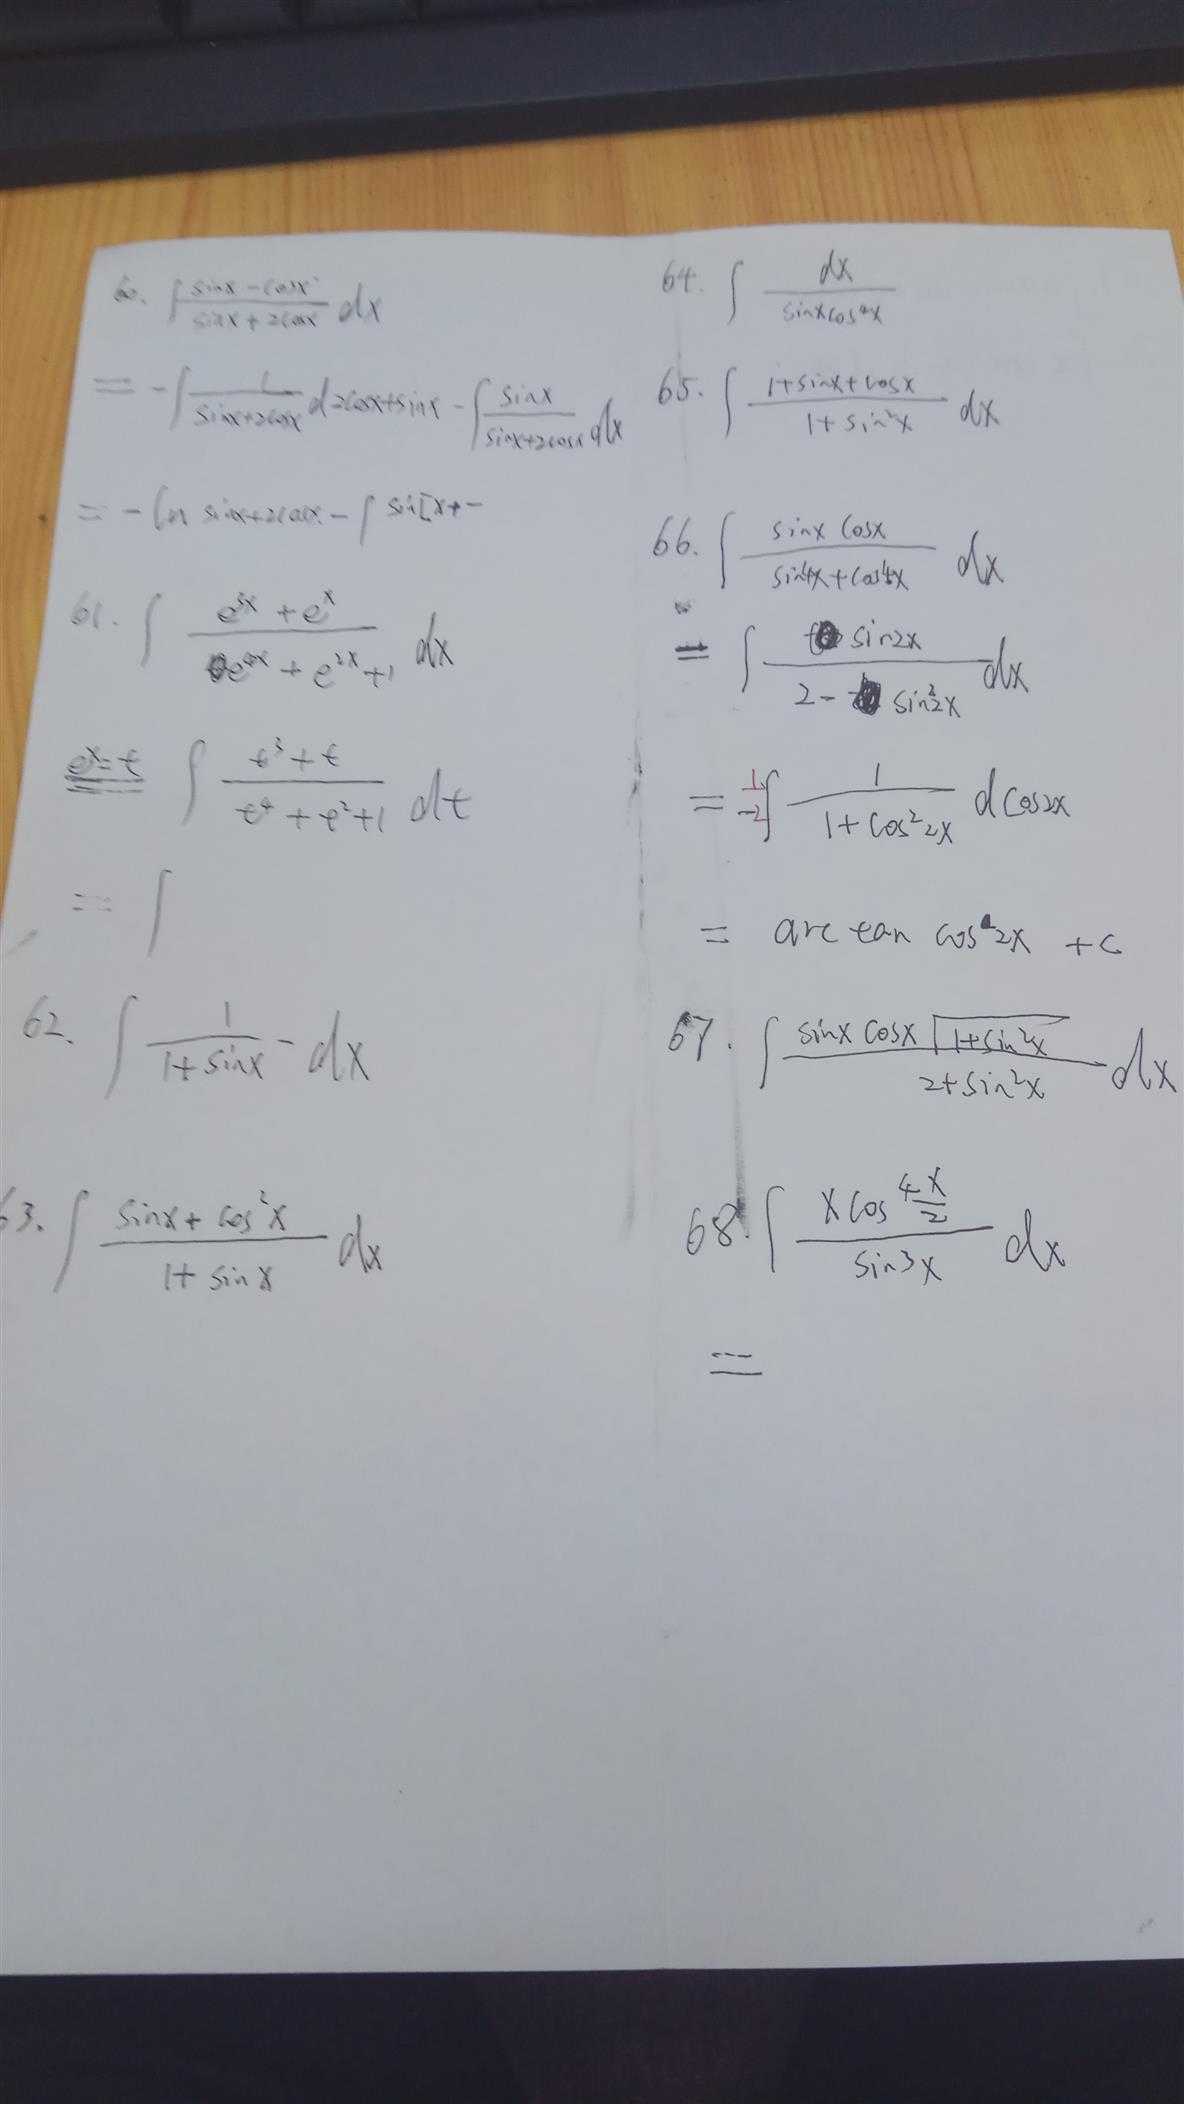 60. ∫ (sinx - cosx)/(sinx + 2cosx) dx
= -∫ 1/(sinx+2cosx) d2cosx+sinx - ∫ sinx/(sinx+2cosx) dx
= -ln sinx+2cosx - ∫ sin[x+-
61. ∫ (e^3x + e^x)/(e^4x + e^2x + 1) dx
e^x=t ∫ (t^3 + t)/(t^4 + t^2 + 1) dt
= ∫
62. ∫ 1/(1+sinx) - dx
63. ∫ (sinx + cos^2x)/(1 + sinx) dx
64. ∫ dx/(sinxcos^4x)
65. ∫ (1+sinx+cosx)/(1+sin^2x) dx
66. ∫ (sinx cosx)/(sin^4x+cos^4x) dx
= ∫ sin2x/(2 - sin^2 2x) dx
= 1/-2 ∫ 1/(1+cos^2 2x) dcos2x
= arctan cos 2x + c
67. ∫ (sinx cosx √(1+sin^2x))/(2+sin^2x) dx
68. ∫ (x cos^4 x/2)/(sin3x) dx
=